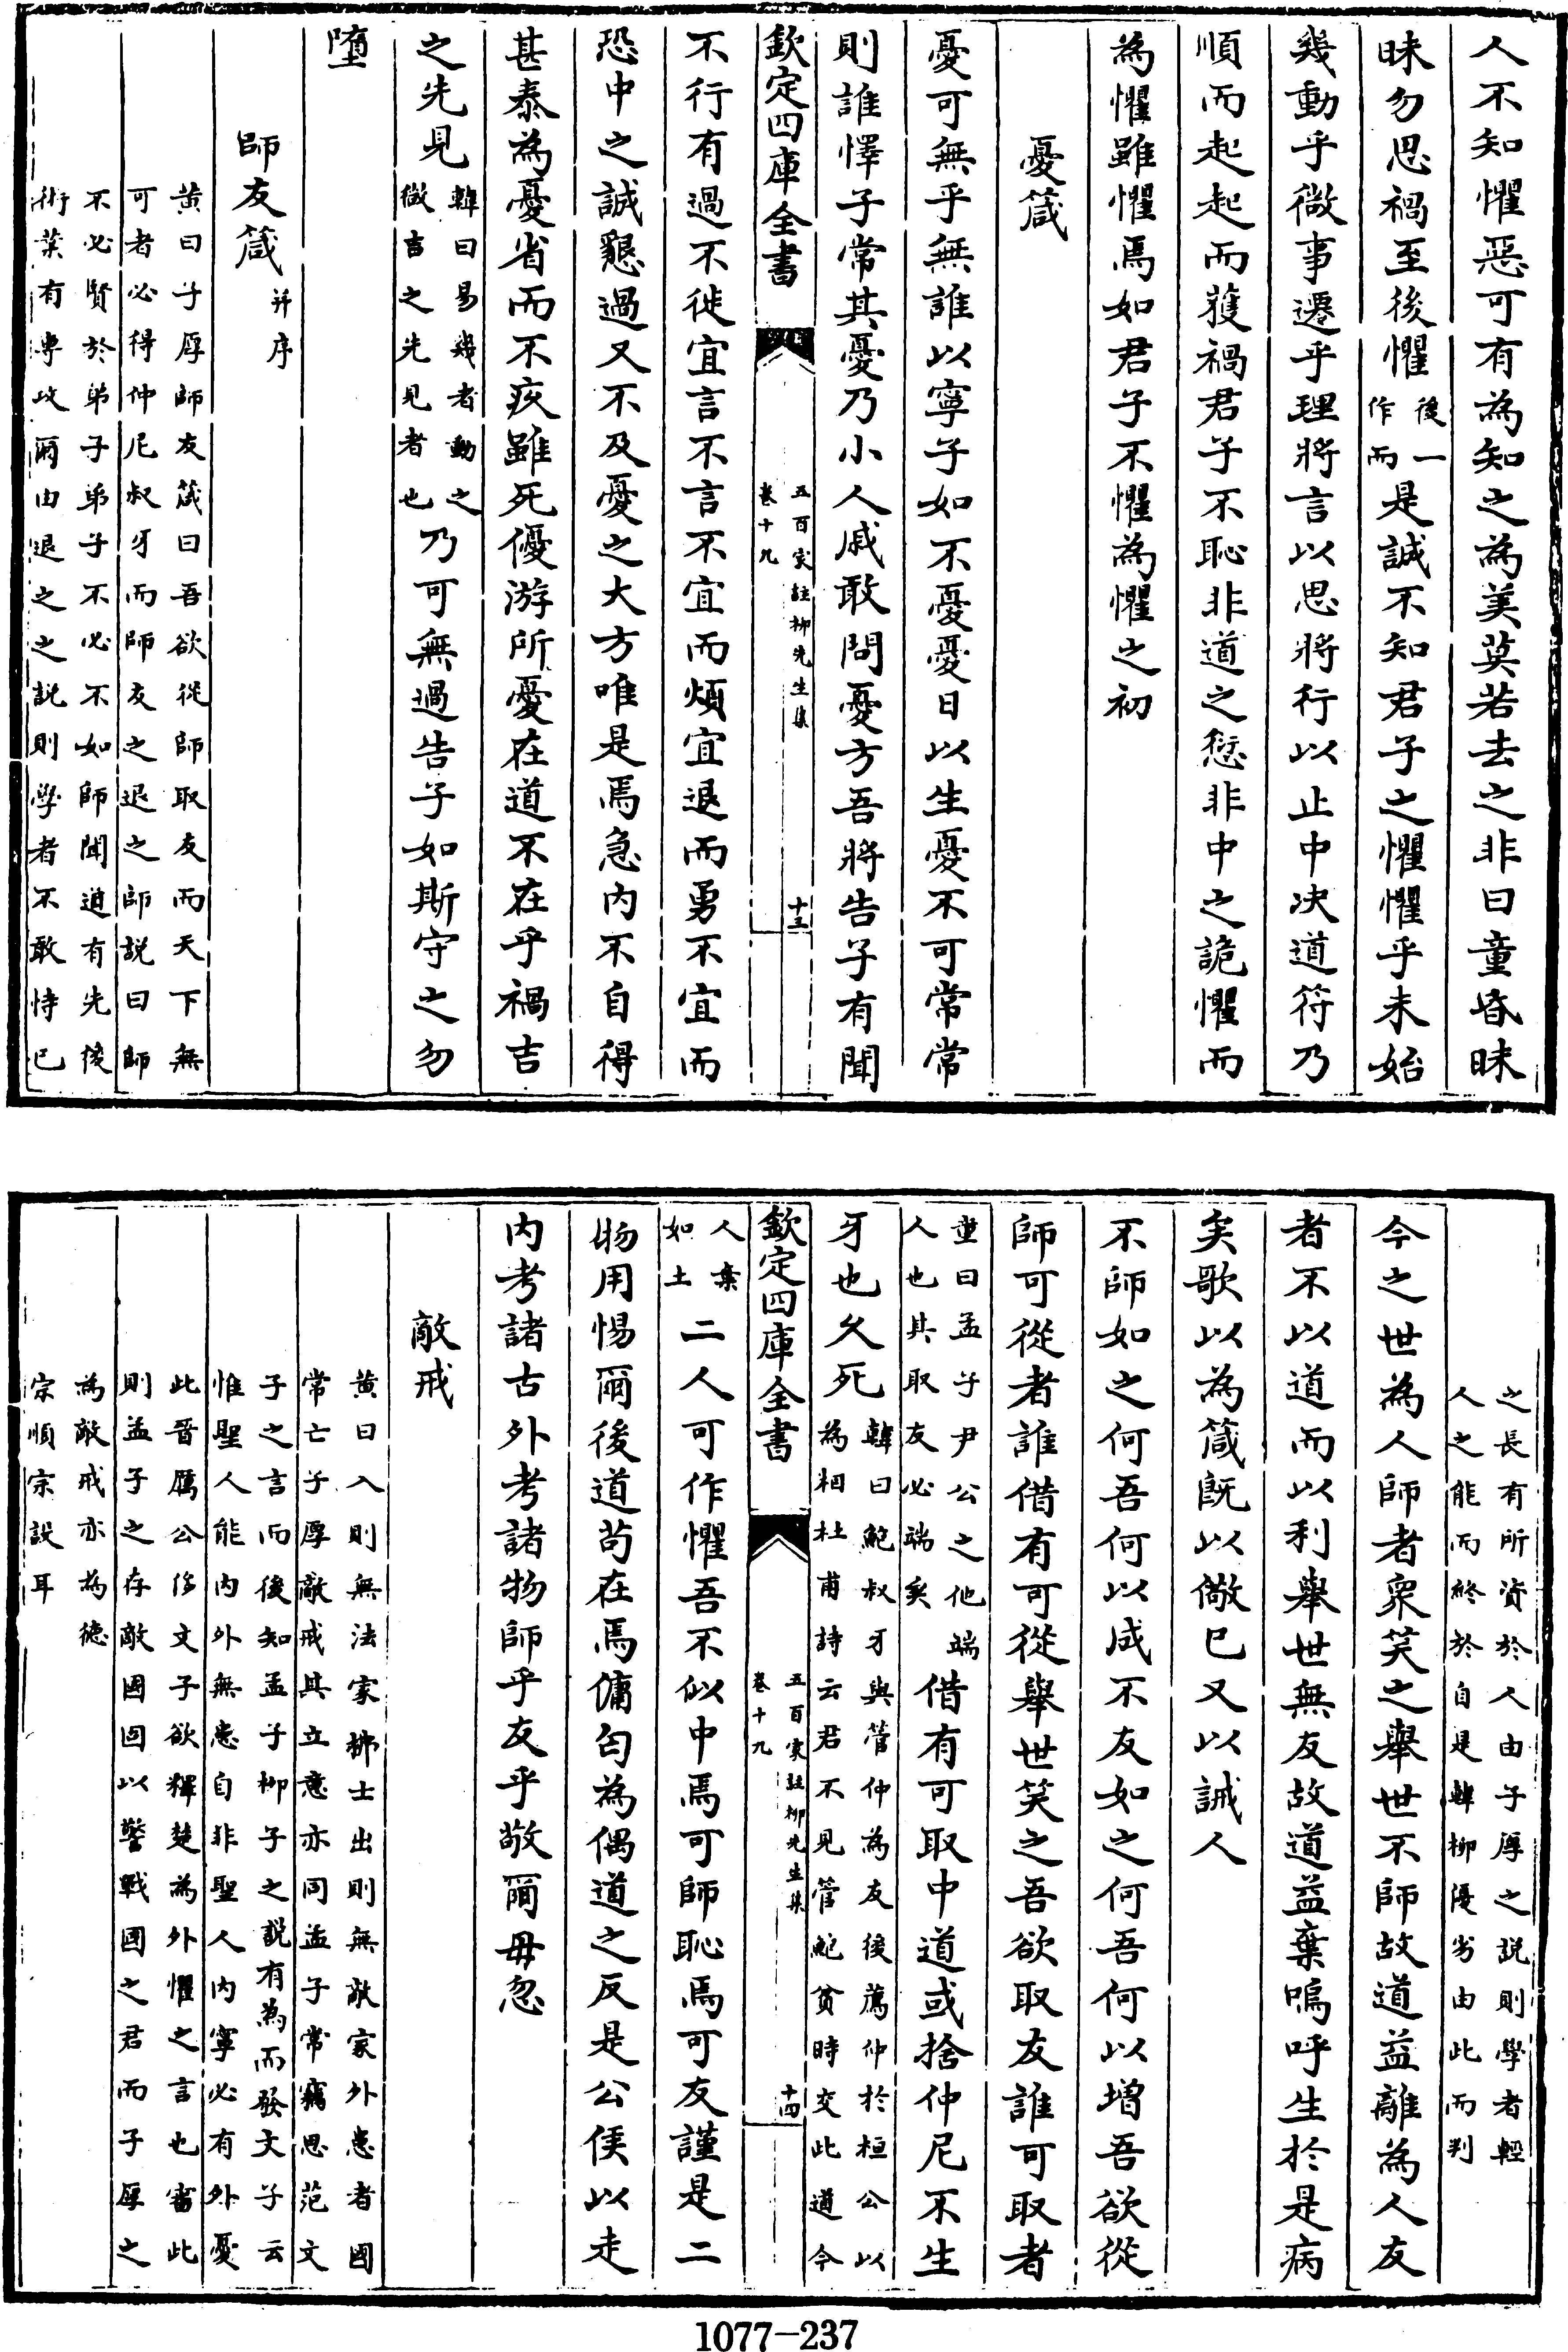 人不知懼惡可有為知之為美莫若去之非曰童昏昧
昧勿思禍至後懼後一作而是誠不知君子之懼懼乎未始
幾動乎微事遷乎理將言以思將行以止中决道符乃
順而起起而獲禍君子不恥非道之愆非中之詭懼而
為懼雖懼焉如君子不懼為懼之初
憂箴
憂可無乎無誰以寧子如不憂憂日以生憂不可常常
則誰懌子常其憂乃小人戚敢問憂方吾將告子有聞
欽定四庫全書
五百家註柳先生集
卷十九
十三
不行有過不徙宜言不言不宜而煩宜退而勇不宜而
恐中之誠懇過又不及憂之大方唯是焉急内不自得
甚泰為憂省而不疚雖死優游所憂在道不在乎禍吉
之先見韓曰易幾者動之微吉之先見者也乃可無過告子如斯守之勿
墮
師友箴并序
黄曰子厚師友箴曰吾欲從師取友而天下無
可者必得仲尼叔牙而師友之退之師説曰師
不必賢於弟子弟子不必不如師聞道有先後
術業有專攻爾由退之之説則學者不敢恃已
之長有所資於人由子厚之説則學者輕
人之能而終於自是韓柳優劣由此而判
今之世為人師者衆笑之舉世不師故道益離為人友
者不以道而以利舉世無友故道益棄嗚呼生於是病
矣歌以為箴既以儆已又以誡人
不師如之何吾何以成不友如之何吾何以增吾欲從
師可從者誰借有可從舉世笑之吾欲取友誰可取者
借有可取中道或捨仲尼不生
童曰孟子尹公之他端
人也其取友必端矣
牙也久死韓曰鮑叔牙與管仲為友後薦仲於桓公以
為相杜甫詩云君不見管鮑貧時交此道今
欽定四庫全書
五百家註柳先生集
卷十九
十四
人棄
如土
二人可作懼吾不似中焉可師恥焉可友謹是二
物用惕爾後道苟在焉傭匄為偶道之反是公侯以走
内考諸古外考諸物師乎友乎敬爾毋忽
敵戒
黄曰入則無法家拂士出則無敵家外患者國
常亡子厚敵戒其立意亦同孟子常竊思范文
子之言而後知孟子柳子之説有為而發文子云
惟聖人能内外無患自非聖人内寧必有外憂
此晉厲公侈文子欲釋楚為外懼之言也審此
則孟子之存敵國固以警戰國之君而子厚之
為敵戒亦為德
宗順宗設耳
1077-237